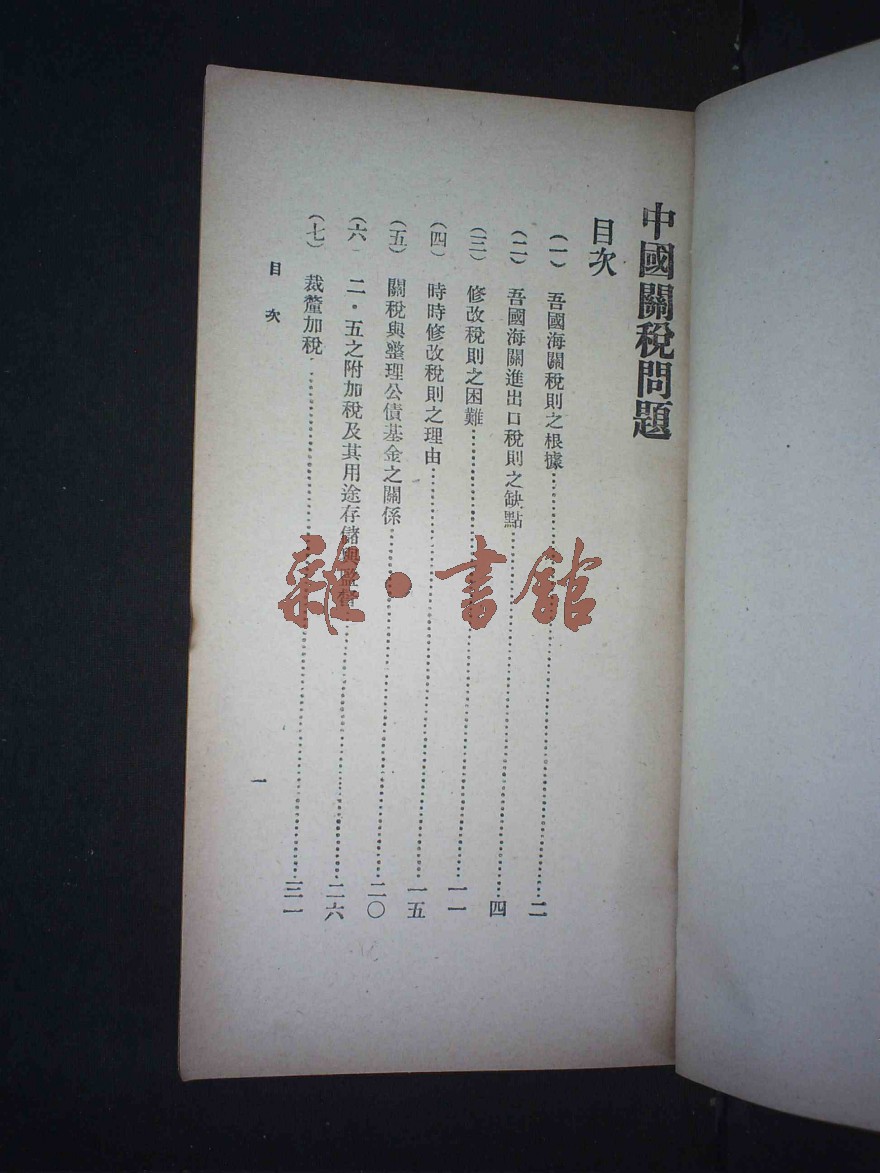 中國關稅問題
目次
（一） 吾國海關稅則之根據……二
（二） 吾國海關進出口稅則之缺點……四
（三） 修改稅則之困難……一一
（四） 時時修改稅則之理由……一五
（五） 關稅與整理公債基金之關係……二〇
（六） 二·五之附加稅及其用途存儲與監督……二六
（七） 裁釐加稅……三一
目次
一
雜·書館